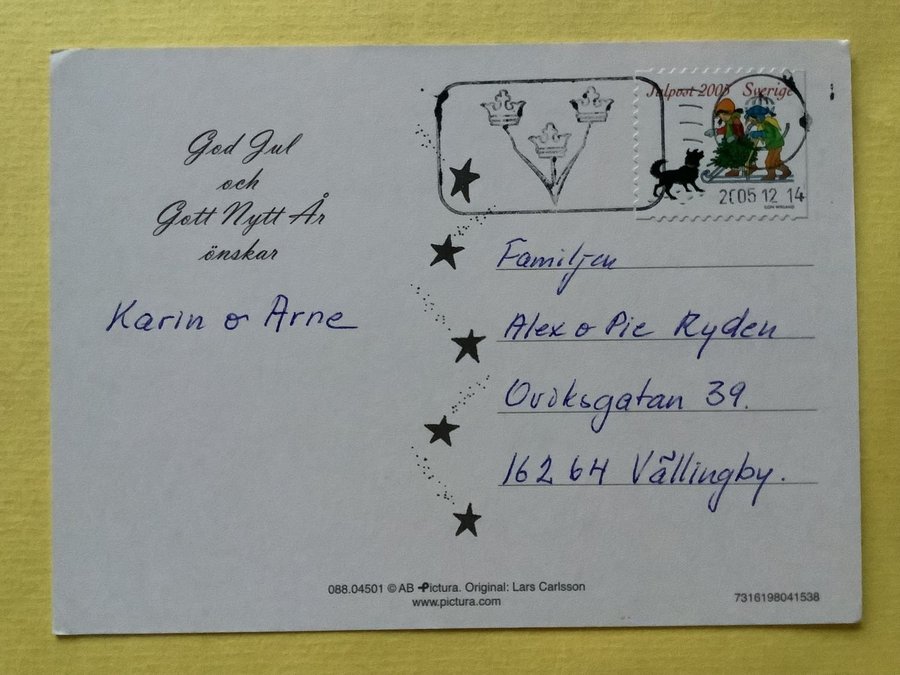 God Jul
och
Gott Nytt År
önskar
Karin o Arne
Julpost 2005 Sverige
2005 12 14
Familjen
Alex o Pie Ryden
Oviksgatan 39.
162 64 Vällingby.
088.04501 © AB Pictura. Original: Lars Carlsson
www.pictura.com
7316198041538